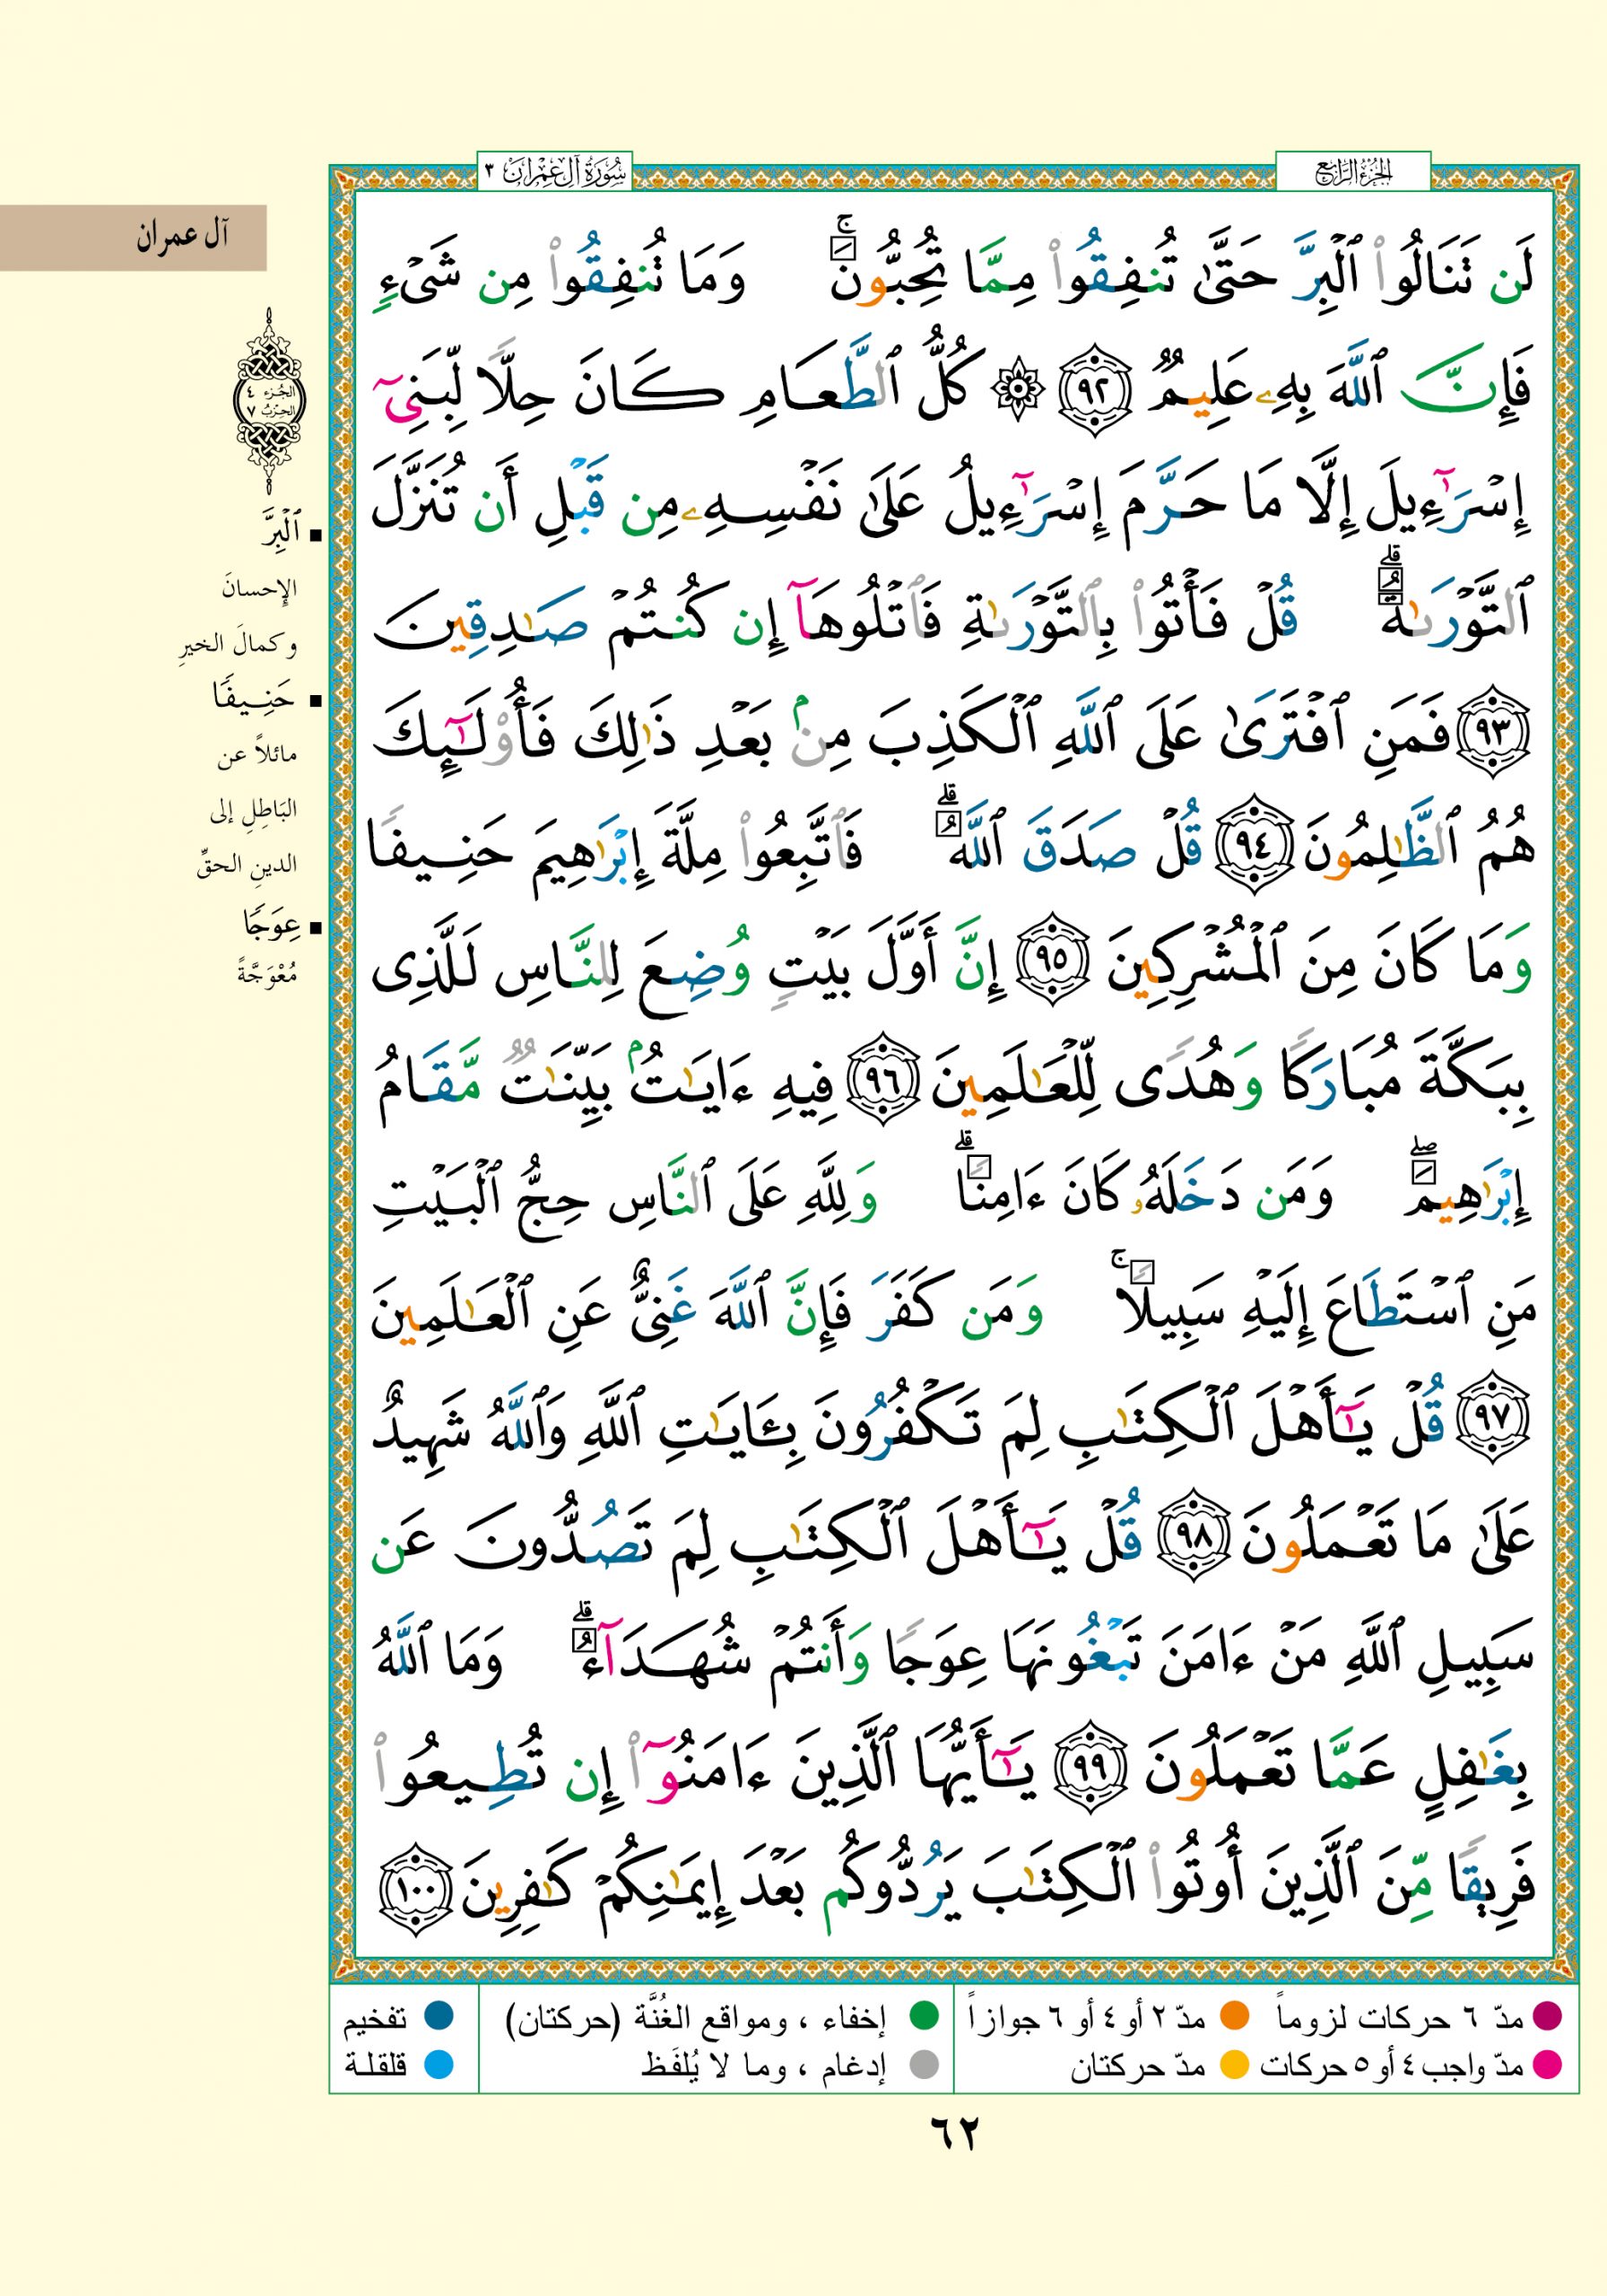 الجزء الرابع
سورة آل عمران ٣
لَن تَنَالُوا۟ ٱلْبِرَّ حَتَّىٰ تُنفِقُوا۟ مِمَّا تُحِبُّونَ ۚ وَمَا تُنفِقُوا۟ مِن شَىْءٍ
فَإِنَّ ٱللَّهَ بِهِۦ عَلِيمٌ ﴿٩٢﴾ ۞ كُلُّ ٱلطَّعَامِ كَانَ حِلًّا لِّبَنِىٓ
إِسْرَٰٓءِيلَ إِلَّا مَا حَرَّمَ إِسْرَٰٓءِيلُ عَلَىٰ نَفْسِهِۦ مِن قَبْلِ أَن تُنَزَّلَ
ٱلتَّوْرَىٰةُ ۗ قُلْ فَأْتُوا۟ بِٱلتَّوْرَىٰةِ فَٱتْلُوهَآ إِن كُنتُمْ صَٰدِقِينَ
﴿٩٣﴾ فَمَنِ ٱفْتَرَىٰ عَلَى ٱللَّهِ ٱلْكَذِبَ مِنۢ بَعْدِ ذَٰلِكَ فَأُو۟لَٰٓئِكَ
هُمُ ٱلظَّٰلِمُونَ ﴿٩٤﴾ قُلْ صَدَقَ ٱللَّهُ ۗ فَٱتَّبِعُوا۟ مِلَّةَ إِبْرَٰهِيمَ حَنِيفًا
وَمَا كَانَ مِنَ ٱلْمُشْرِكِينَ ﴿٩٥﴾ إِنَّ أَوَّلَ بَيْتٍ وُضِعَ لِلنَّاسِ لَلَّذِى
بِبَكَّةَ مُبَارَكًا وَهُدًى لِّلْعَٰلَمِينَ ﴿٩٦﴾ فِيهِ ءَايَٰتٌۢ بَيِّنَٰتٌ مَّقَامُ
إِبْرَٰهِيمَ ۖ وَمَن دَخَلَهُۥ كَانَ ءَامِنًا ۗ وَلِلَّهِ عَلَى ٱلنَّاسِ حِجُّ ٱلْبَيْتِ
مَنِ ٱسْتَطَاعَ إِلَيْهِ سَبِيلًا ۚ وَمَن كَفَرَ فَإِنَّ ٱللَّهَ غَنِىٌّ عَنِ ٱلْعَٰلَمِينَ
﴿٩٧﴾ قُلْ يَٰٓأَهْلَ ٱلْكِتَٰبِ لِمَ تَكْفُرُونَ بِـَٔايَٰتِ ٱللَّهِ وَٱللَّهُ شَهِيدٌ
عَلَىٰ مَا تَعْمَلُونَ ﴿٩٨﴾ قُلْ يَٰٓأَهْلَ ٱلْكِتَٰبِ لِمَ تَصُدُّونَ عَن
سَبِيلِ ٱللَّهِ مَنْ ءَامَنَ تَبْغُونَهَا عِوَجًا وَأَنتُمْ شُهَدَآءُ ۗ وَمَا ٱللَّهُ
بِغَٰفِلٍ عَمَّا تَعْمَلُونَ ﴿٩٩﴾ يَٰٓأَيُّهَا ٱلَّذِينَ ءَامَنُوٓا۟ إِن تُطِيعُوا۟
فَرِيقًا مِّنَ ٱلَّذِينَ أُوتُوا۟ ٱلْكِتَٰبَ يَرُدُّوكُم بَعْدَ إِيمَٰنِكُمْ كَٰفِرِينَ ﴿١٠٠﴾
آل عمران
الجزء ٤
الحزب ٧
ٱلْبِرَّ
الإحسانَ
وكمالَ الخيرِ
حَنِيفًا
مائلاً عن
البَاطِلِ إلى
الدينِ الحقِّ
عِوَجًا
مُعْوَجَّةً
مدّ ٦ حركات لزوماً
مدّ ٢ أو ٤ أو ٦ جوازاً
إخفاء ، ومواقع الغُنَّة (حركتان)
تفخيم
مدّ واجب ٤ أو ٥ حركات
مدّ حركتان
إدغام ، وما لا يُلفَظ
قلقلة
٦٢